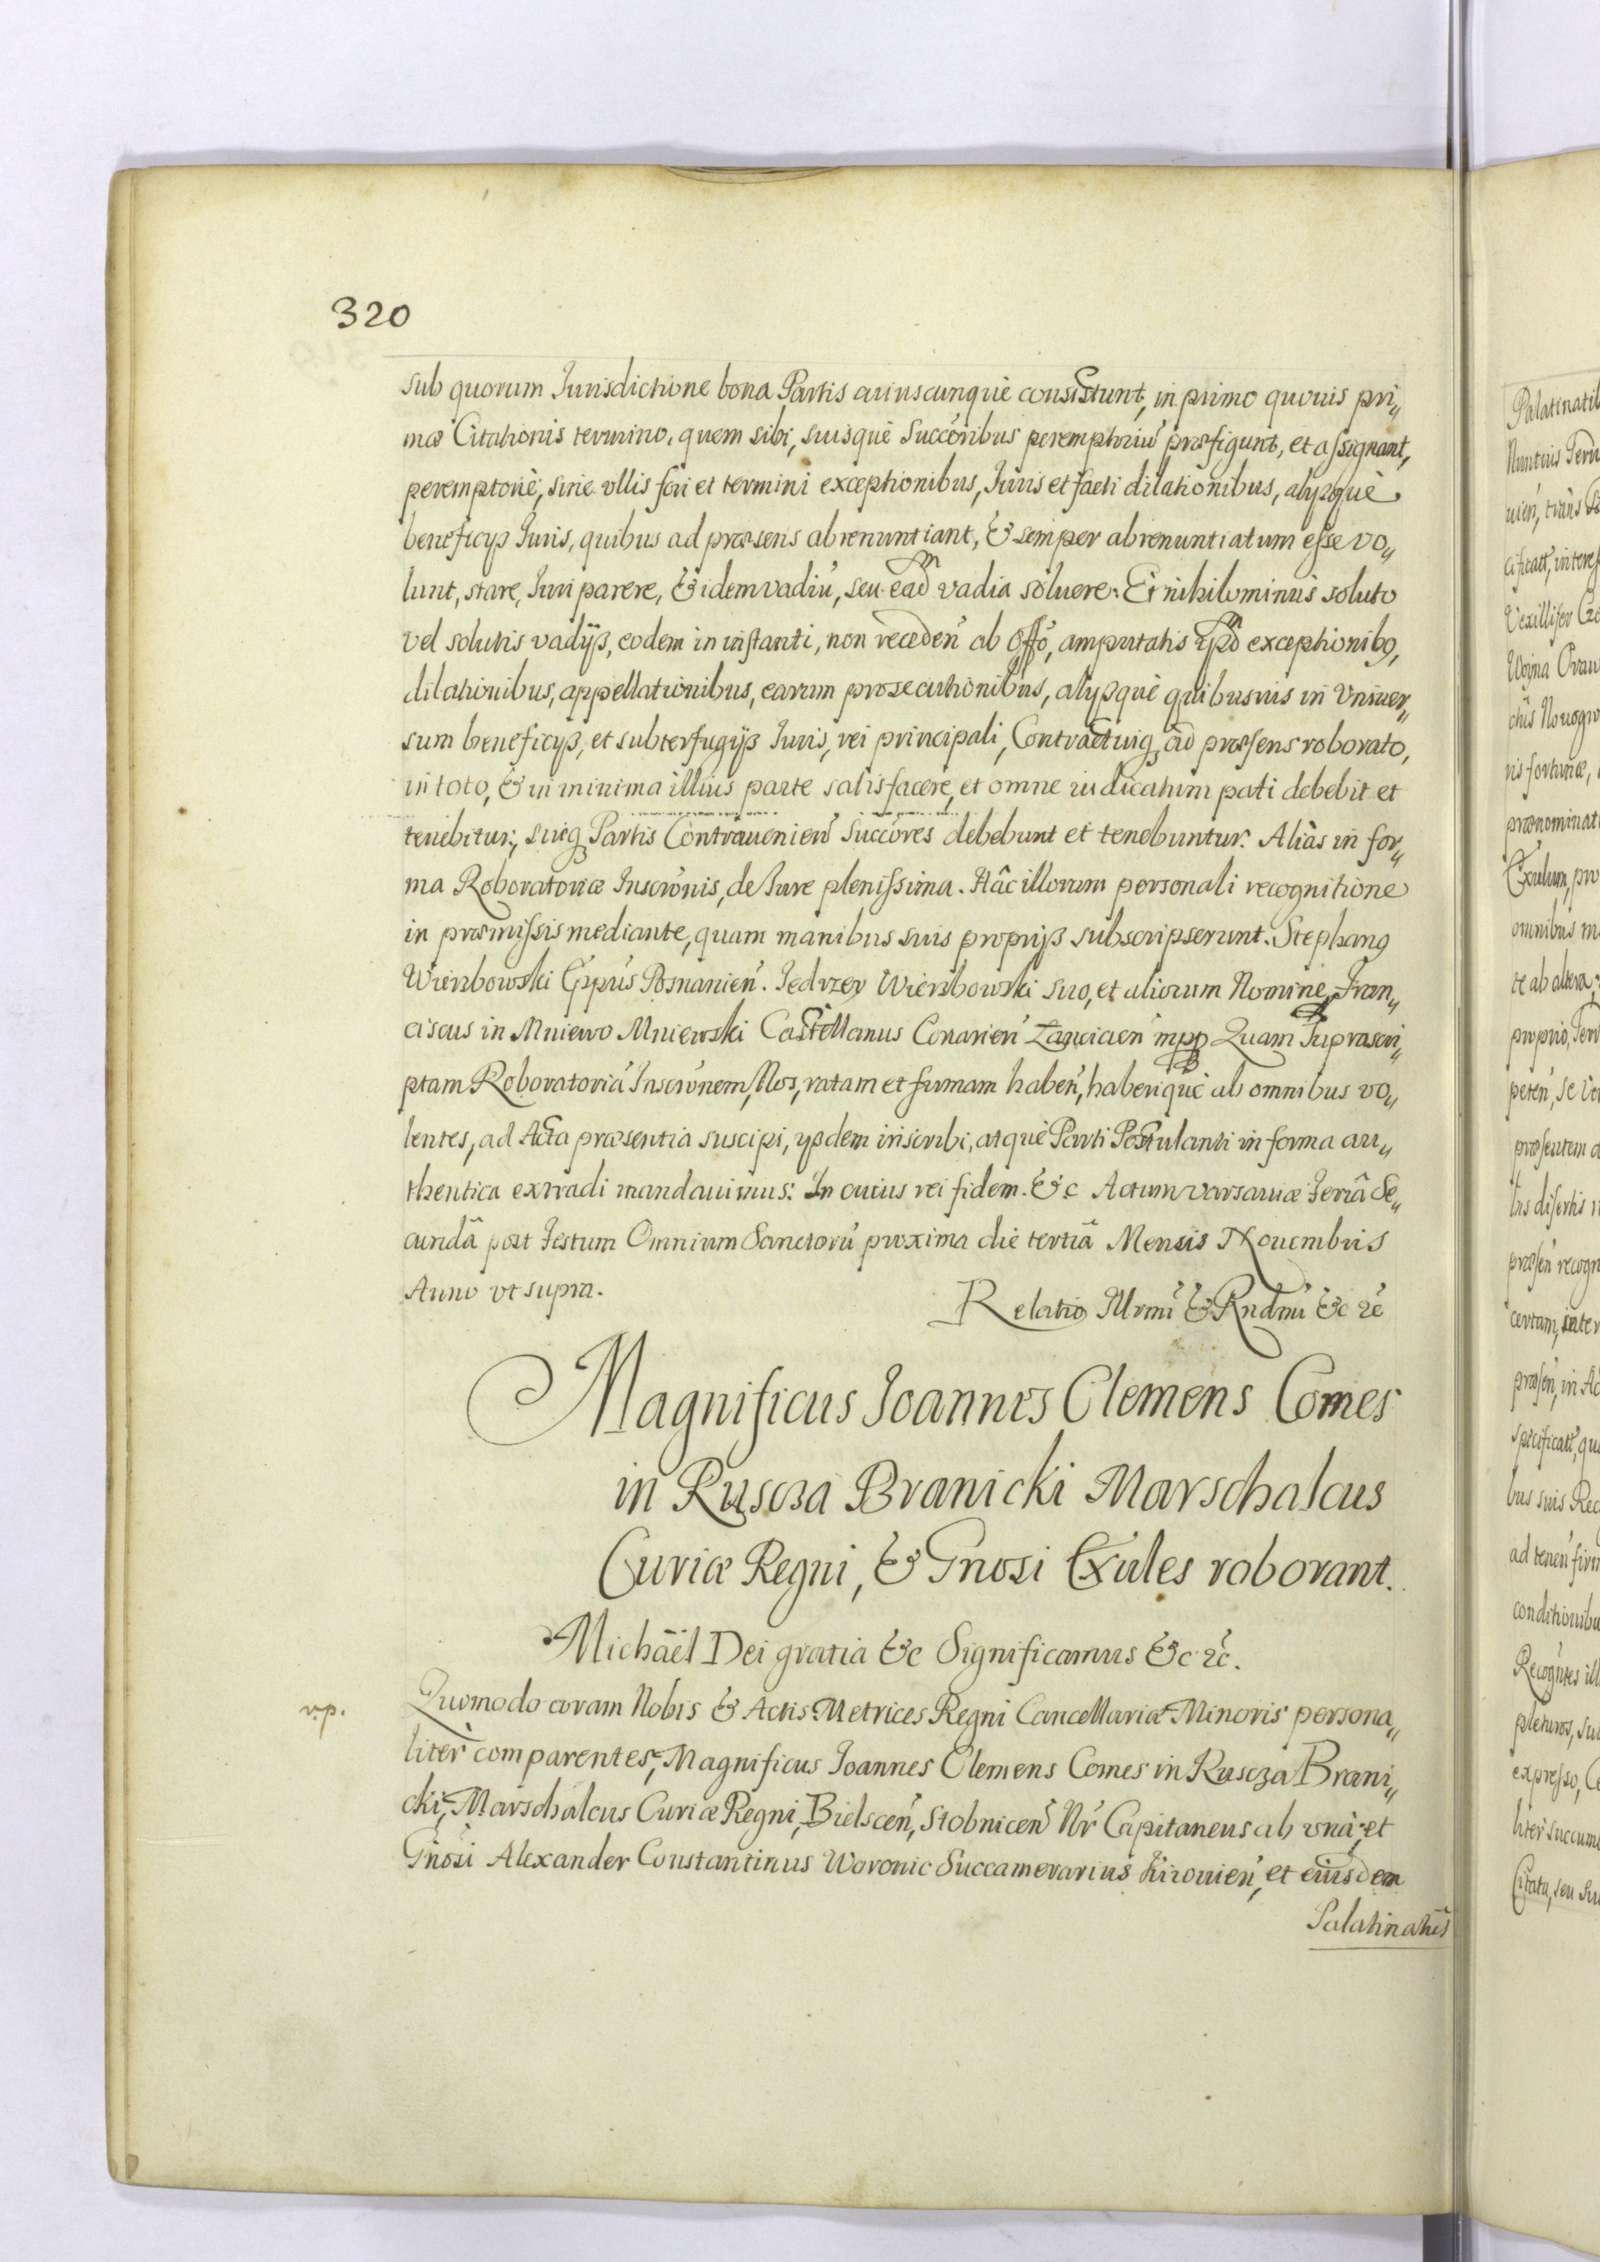 320
sub quorum Jurisdictione bona Partis cuiuscunquè consistunt, in primo quouis pri„
mæ Citationis termino, quem sibi, suisquè Succoribus peremptoriũ præfigunt, et assignant,
peremptoriè, sine vllis fori et termini exceptionibus, Juris et facti dilationibus, alysquè
beneficyß Juris, quibus ad præsens abrenuntiant, & semper abrenuntiatum esse vo„
lunt, stare, Juri parere, & idem vadiũ, seu eadm vadia soluere. Et nihilominus soluto
vel solutis vadijß, eodem in instanti, non receden̄ ab Offõ, amputatis exceptionibꝯ,
dilationibus, appellationibus, earum prosecutionibus, alyßquè quibusuis in Vniuer„
sum beneficyß, et subterfugijß Juris, rei principali, Contractuiqꝫ ad præsens roborato,
in toto, & in minima illius parte satisfacere, et omne iudicatum pati debebit et
tenebitur; suiqꝫ Partis Contrauenien̄ Succores debebunt et tenebuntur. Aliàs in for„
ma Roboratoriæ Inscrõnis, de Jure plenissima. Hâc illorum personali recognitione
in præmissis mediante, quam manibus suis proprijß subscripserunt. Stephanꝯ
Wierzbowski Eppus Posnanien̄. Jedrzey Wierzbowski suo, et aliorum Nomine, Fran„
ciscus in Mniewo Mniewski Castellanus Conarien̄ Lancicien̄ mpp Quam suprascri„
ptam Roboratoriã Inscrõnem, Nos, ratam et firmam haben̄, haberiquè ab omnibus vo„
lentes, ad Acta præsentia suscipi, ysdem inscribi, atquè Parti Postulanti in forma au„
thentica extradi mandauimus. In cuius rei fidem. &c Actum Varsauiæ Feriâ Se„
cundâ post Festum Omnium Sanctorũ proxima die tertiâ Mensis Nouembris
Anno vt supra.
Relatio Illrmi & Rndmi &c ꝛc
Magnificus Joannes Clemens Comes
in Ruscza Branicki Marschalcus
Curiæ Regni, & Gnosi Exules roborant.
Michäel Dei gratia &c Significamus &c ꝛc.
v.p.
Quomodo coram Nobis & Actis Metrices Regni Cancellariæ Minoris persona„
litèr comparentes, Magnificus Joannes Clemens Comes in Ruscza Brani„
cki, Marschalcus Curiæ Regni, Bielscen̄, Stobnicen̄ Nr̄ Capitaneus ab vnâ; et
Gnosi Alexander Constantinus Woronic Succamerarius Kiiouien̄, et eiusdem
Palatinatus